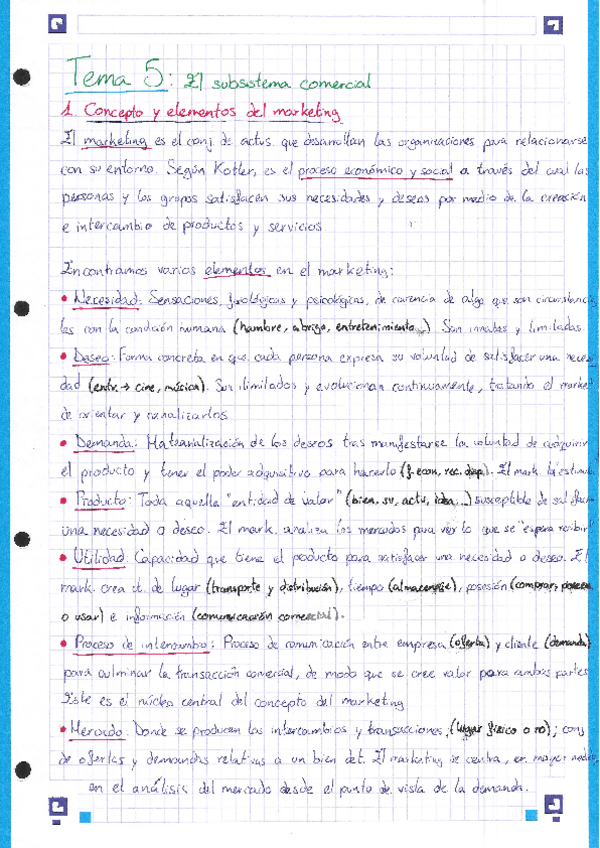 Tema 5: El subsistema comercial
1. Concepto y elementos del marketing
El marketing es el conj. de activs. que desarrollan las organizaciones para relacionarse
con su entorno. Según Kotler, es el proceso económico y social a través del cual las
personas y los grupos satisfacen sus necesidades y deseos por medio de la creación
e intercambio de productos y servicios
Encontramos varios elementos en el marketing:
• Necesidad: Sensaciones, fisiológicas y psicológicas, de carencia de algo que son
les con la condición humana (hambre, abrigo, entretenimiento...). Son innatas y limitadas.
• Deseo: Forma concreta en que cada persona expresa su voluntad de satisfacer una necesi
dad (entr. → cine, música). Son ilimitados y evolucionan continuamente, tratando el market
de orientar y canalizarlos
• Demanda: Materialización de los deseos tras manifestarse la voluntad de adquirir
el producto y tener el poder adquisitivo para hacerlo (f. econ, rec. disp). El mark. la estimula
• Producto: Toda aquella "entidad de valor" (bien, sv, activ, idea,...) susceptible de satisfacer
una necesidad o deseo. El mark. analiza los mercados para ver lo que se "espera recibir"
• Utilidad: Capacidad que tiene el producto para satisfacer una necesidad o deseo. El
mark. crea ut. de lugar (transporte y distribución), tiempo (almacenaje), posesión (comprar, poseer
o usar) e información (comunicación comercial).
• Proceso de intercambio: Proceso de comunicación entre empresa (oferta) y cliente (demanda)
para culminar la transacción comercial, de modo que se cree valor para ambas partes
Este es el núcleo central del concepto del marketing
• Mercado: Donde se producen los intercambios y transacciones, (lugar físico o no); conj
de ofertas y demandas relativas a un bien det. El marketing se centra, en mayor medida,
en el análisis del mercado desde el punto de vista de la demanda.